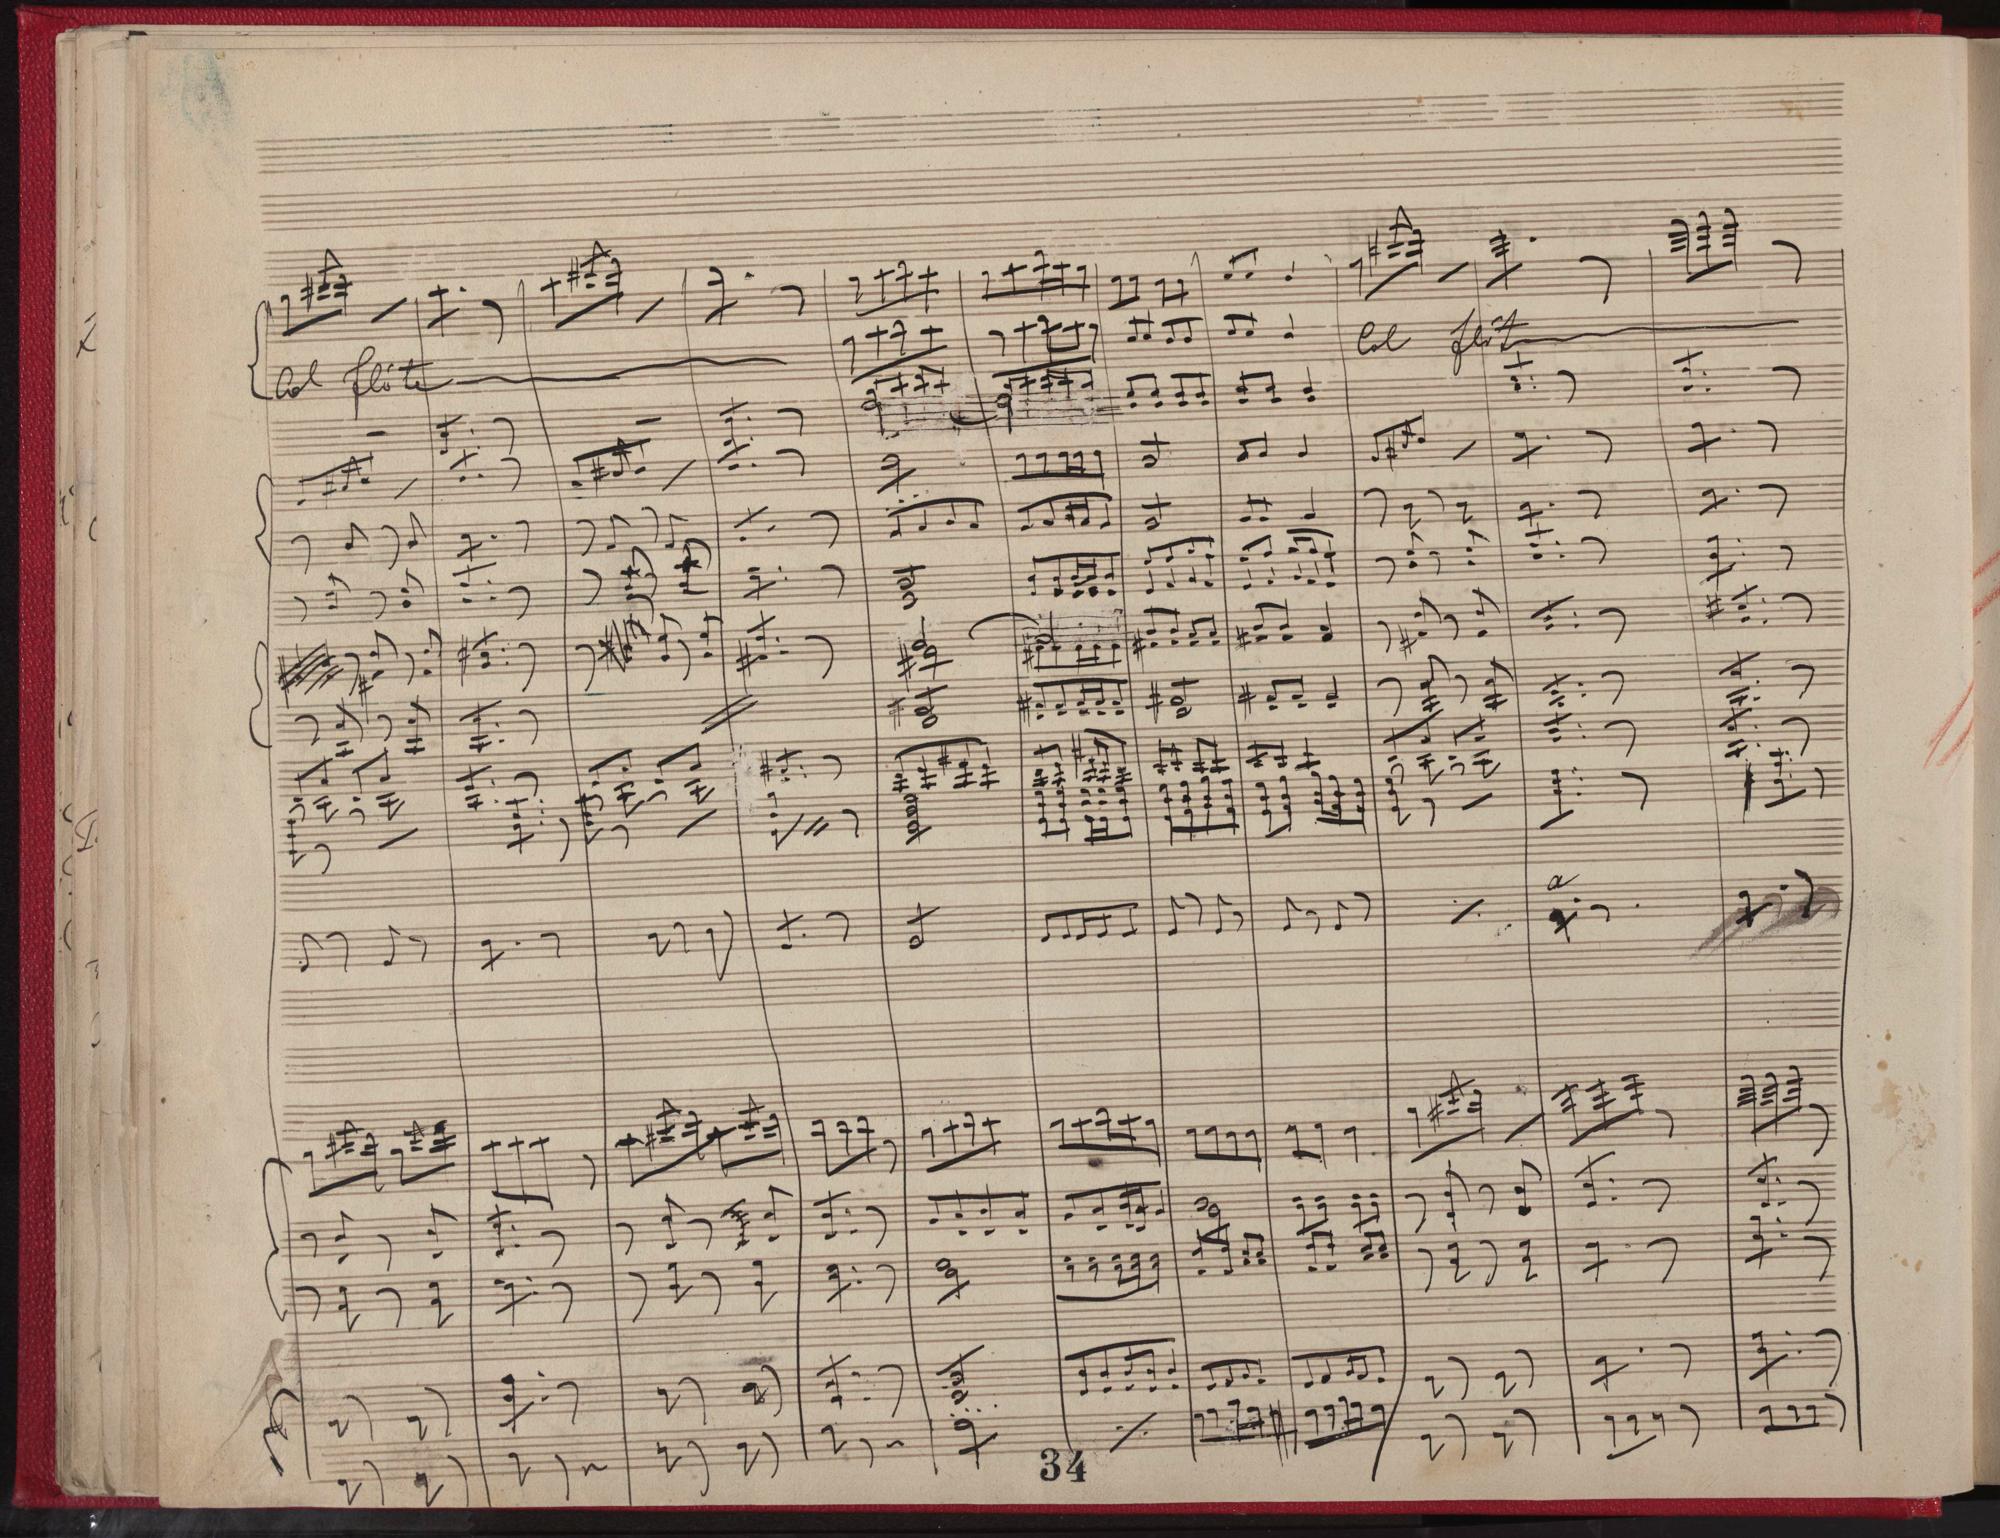 Col flöte
Col flöt
a
34